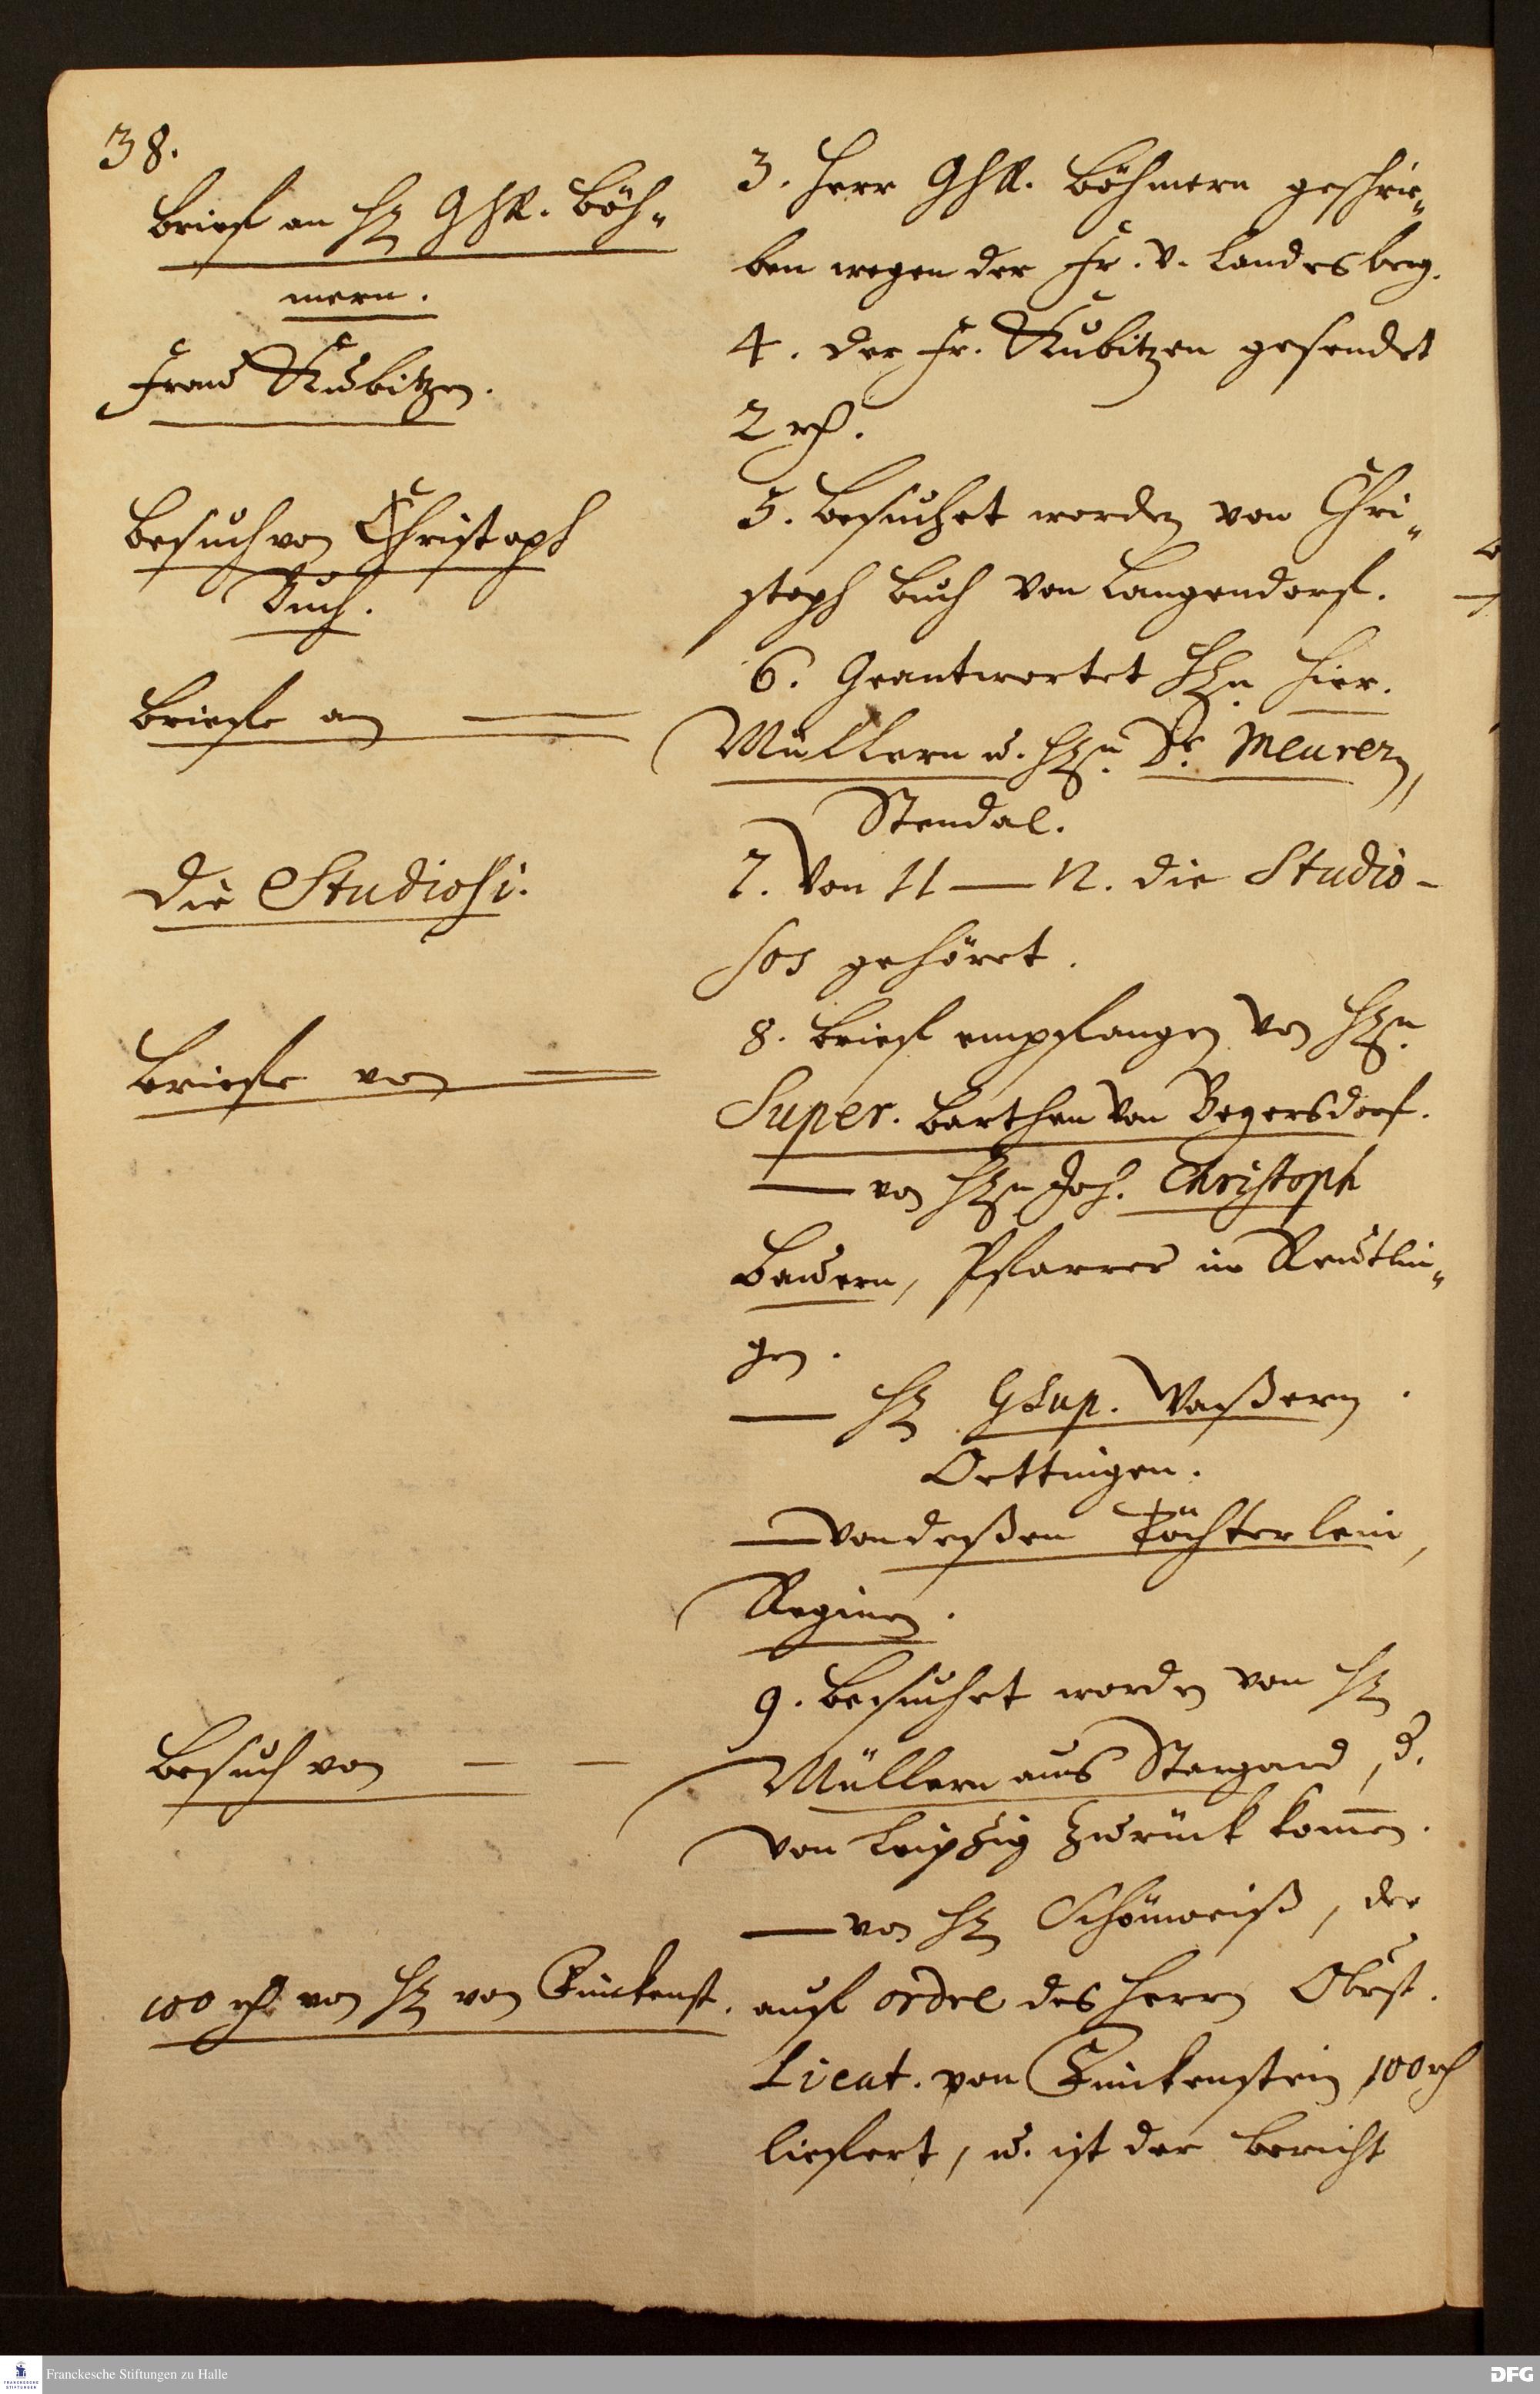 38.
Brief an H. GhR. Böh-
mern.
Frau Kubitzen.
Besuch von Christoph
Buch.
Briefe an
Die Studiosi.
Briefe von
Besuch von
100 rth von H. von Finckenst.
3. Herr GhR. Böhmern geschrie-
ben wegen der Fr. v. Landesberg.
4. der Fr. Kubitzen gesendet
2 rth.
5. Besuchet worden von Chri-
stoph Buch von Langendorf.
6. Geantwortet Hrn. Hier.
Müllern u. Hrn. Dr. Meurern,
Stendal.
7. Von 11 — 12. die Studio-
sos gehöret.
8. Brief empfangen von Hrn.
Super. Barthen von
— von Hrn Joh. Christoph
Bauern, Pfarrer in Reutlin-
gen.
— H. GSup. Waßern.
Oettingen.
— von deßen Töchterlein,
Reginen.
9. Besuchet worden von H.
Müllern aus Stargard, d.
von Leipzig zurück kom̅en.
— von H. Schönweiß, der
auf ordre des Herrn Obrist.
Lieut. von Finckenstein 100 rth
liefert, u. ist der Bericht
Franckesche Stiftungen zu Halle
DFG